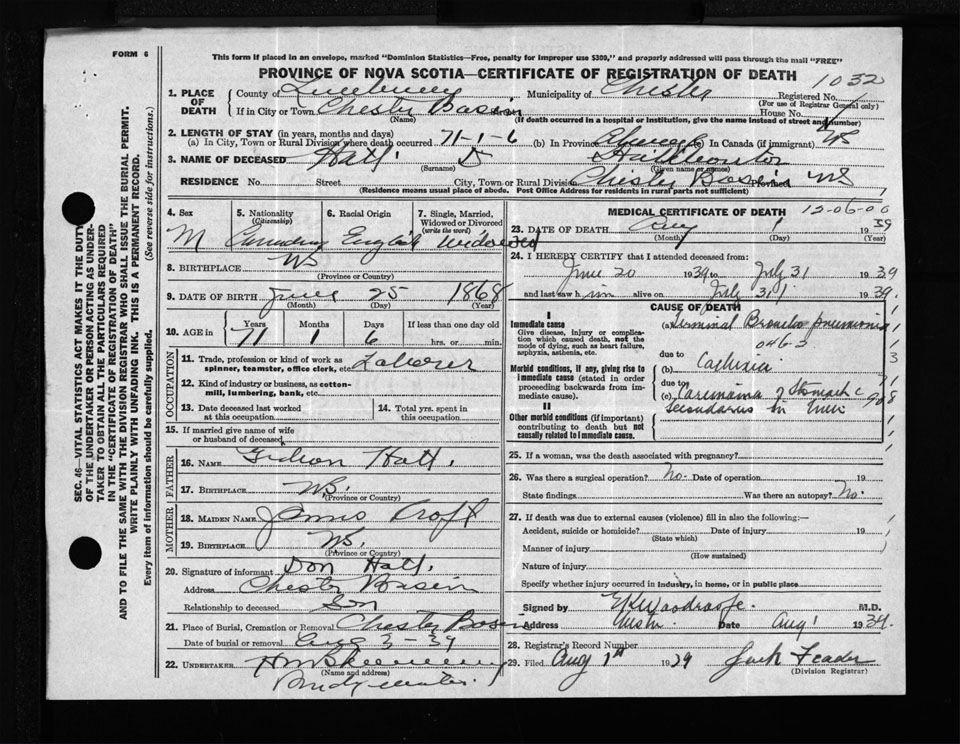 FORM 6
This form if placed in an envelope, marked "Dominion Statistics—Free, penalty for improper use $300," and properly addressed will pass through the mail "FREE"
PROVINCE OF NOVA SCOTIA—CERTIFICATE OF REGISTRATION OF DEATH
1032
1. PLACE OF DEATH County of Lunenburg Municipality of Chester Registered No.
(For use of Registrar General only)
If in City or Town Chester Basin House No.
(Name) (If death occurred in a hospital or institution, give the name instead of street and number)
2. LENGTH OF STAY (in years, months and days)
(a) In City, Town or Rural Division where death occurred 71-1-6 (b) In Province (c) In Canada (if immigrant)
3. NAME OF DECEASED Hatt
(Surname) (Given name or names)
RESIDENCE No. Street City, Town or Rural Division Chester Basin Province NS
(Residence means usual place of abode. Post Office Address for residents in rural parts not sufficient)
4. Sex M
5. Nationality (Citizenship)
6. Racial Origin English
7. Single, Married, Widowed or Divorced (write the word) Widowed
8. BIRTHPLACE NS
(Province or Country)
9. DATE OF BIRTH June 25 1868
(Month) (Day) (Year)
10. AGE in Years Months Days If less than one day old
71 1 6 hrs. or min.
OCCUPATION
11. Trade, profession or kind of work as spinner, teamster, office clerk, etc. Laborer
12. Kind of industry or business, as cotton-mill, lumbering, bank, etc.
13. Date deceased last worked at this occupation
14. Total yrs. spent in this occupation
15. If married give name of wife or husband of deceased
FATHER
16. NAME Gideon Hatt
17. BIRTHPLACE NS.
(Province or Country)
MOTHER
18. MAIDEN NAME Croft
19. BIRTHPLACE NS.
(Province or Country)
20. Signature of informant Don Hatt
Address Chester Basin
Relationship to deceased Son
21. Place of Burial, Cremation or Removal Chester Basin
Date of burial or removal Aug 3-39
22. UNDERTAKER
(Name and address)
Bridgewater
MEDICAL CERTIFICATE OF DEATH
12-06-00
23. DATE OF DEATH Aug 1 1939
(Month) (Day) (Year)
24. I HEREBY CERTIFY that I attended deceased from:
June 20 1939 to July 31 1939
and last saw him alive on July 31 1939
CAUSE OF DEATH
I
Immediate cause
Give disease, injury or complication which caused death, not the mode of dying, such as heart failure, asphyxia, asthenia, etc.
(a) Terminal Broncho pneumonia
046-2
due to
Morbid conditions, if any, giving rise to immediate cause (stated in order proceeding backwards from immediate cause).
(b) Cachexia
due to
(c) Carcinoma of Stomach c
secondaries in liver
II
Other morbid conditions (if important) contributing to death but not causally related to immediate cause.
25. If a woman, was the death associated with pregnancy?
26. Was there a surgical operation? No. Date of operation 19
State findings Was there an autopsy? No.
27. If death was due to external causes (violence) fill in also the following:—
Accident, suicide or homicide? Date of injury 19
(State which)
Manner of injury
(How sustained)
Nature of injury
Specify whether injury occurred in industry, in home, or in public place
Signed by M.D.
Address Date Aug 1 1939.
28. Registrar's Record Number
29. Filed Aug 1st 1939 Jack
(Division Registrar)
SEC. 46—VITAL STATISTICS ACT MAKES IT THE DUTY
OF THE UNDERTAKER OR PERSON ACTING AS UNDER-
TAKER TO OBTAIN ALL THE PARTICULARS REQUIRED
IN THE "CERTIFICATE OF REGISTRATION OF DEATH"
AND TO FILE THE SAME WITH THE DIVISION REGISTRAR WHO SHALL ISSUE THE BURIAL PERMIT.
WRITE PLAINLY WITH UNFADING INK. THIS IS A PERMANENT RECORD.
Every item of information should be carefully supplied. (See reverse side for instructions.)